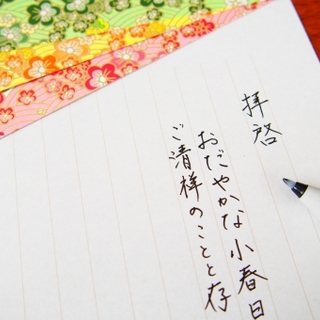 拝啓
おだやかな小春日
ご清様のことと存